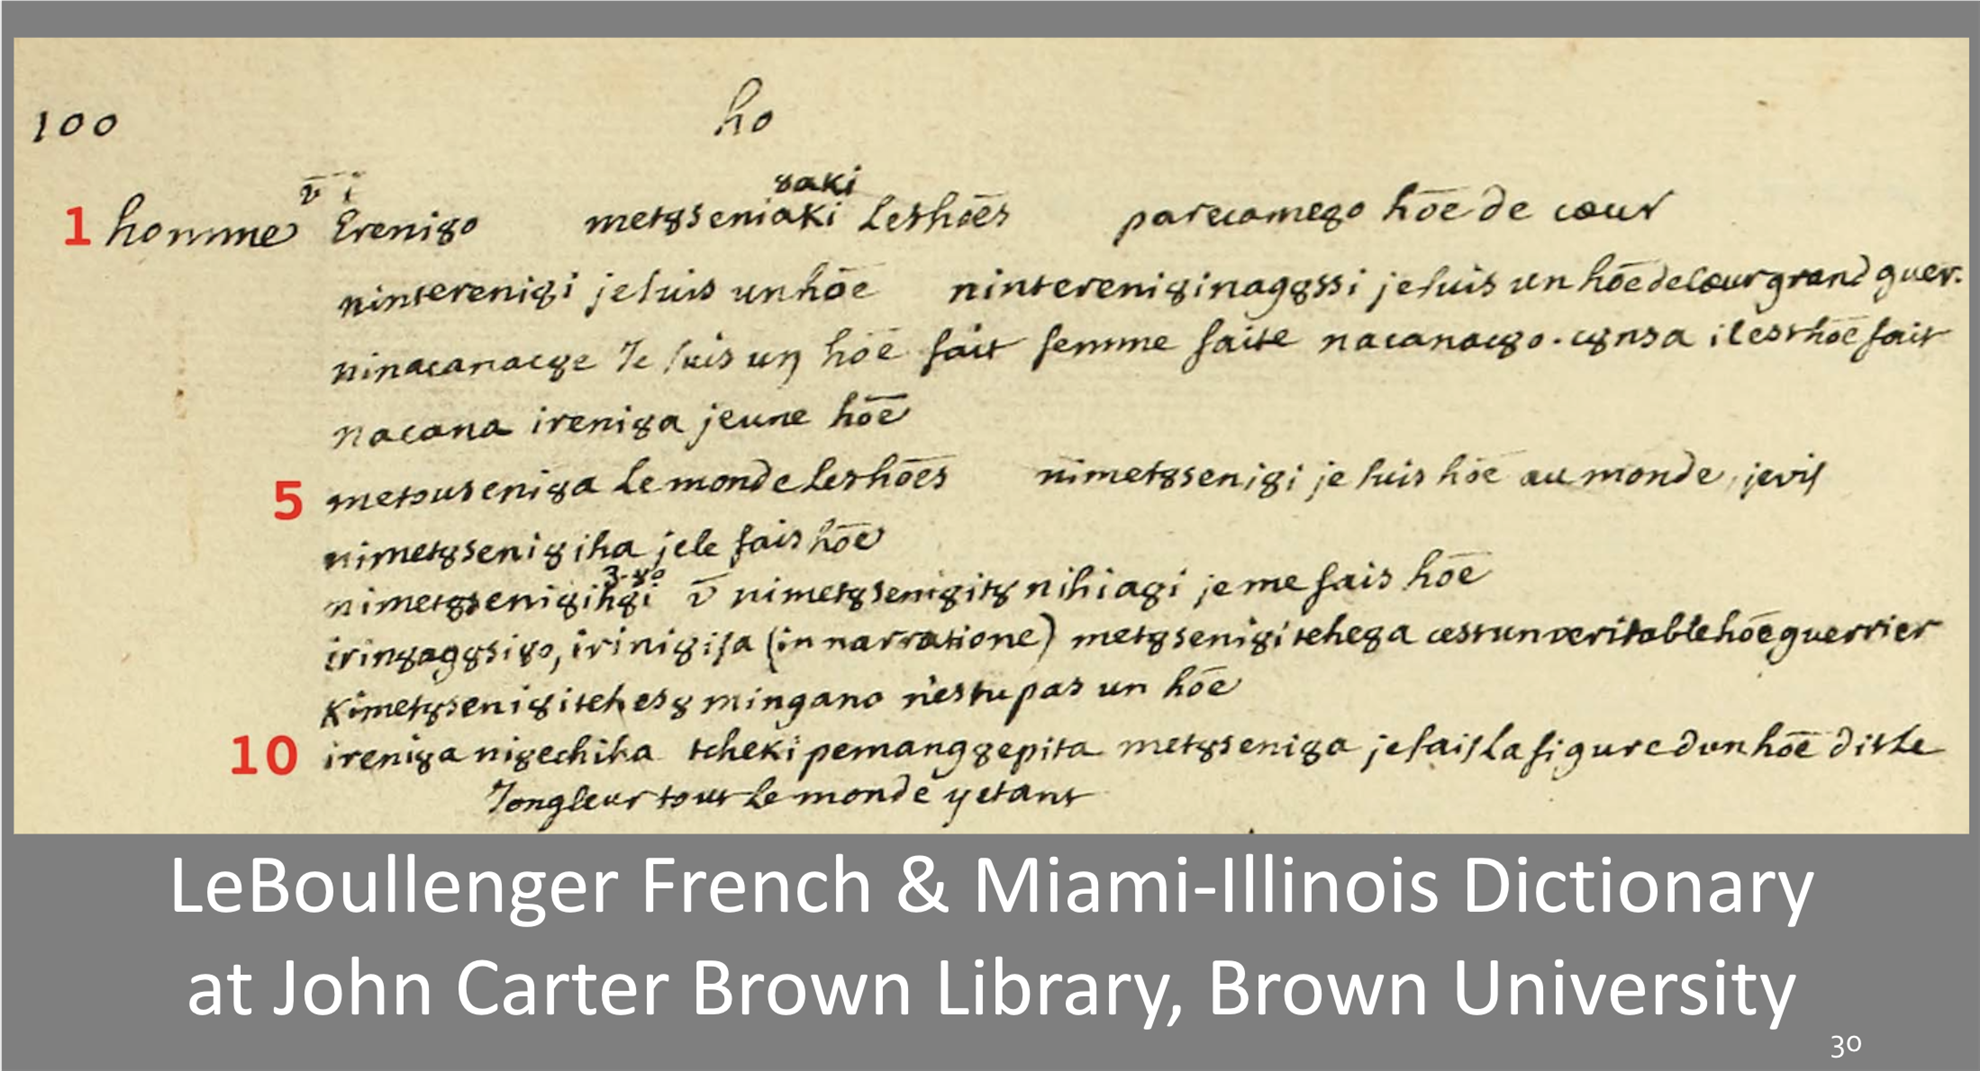 100 ho
8aki
v i
1 homme Ereni8o met8seniaki Les hōēs parecame8o hōē de cœur
nintereni8i je suis un hōē nintereni8inag8ssi je suis un hōē de cœur grand guer.
ninacanac8e Je suis un hōē fait femme faite nacanac8o. c8nsa il est hōē fait
nacana ireni8a jeune hōē
5 metouseni8a Le monde les hōēs nimet8seni8i je suis hōē au monde, je vis
nimet8seni8iha je le fais hōē
3. 8o
nimet8seni8ih8i v̄ nimet8seni8it8nihiagi je me fais hōē
irini8i sa (in narratione) met8seni8itehe8a cest un veritable hōē guerrier
kimet8seni8itehes8 mingano n'es tu pas un hōē
10 ireni8a ni8echiha tcheki pemang8epita met8seni8a je fais la figure dun hōē dit Le
Jongleur tout Le monde y etant
LeBoullenger French & Miami-Illinois Dictionary
at John Carter Brown Library, Brown University
30